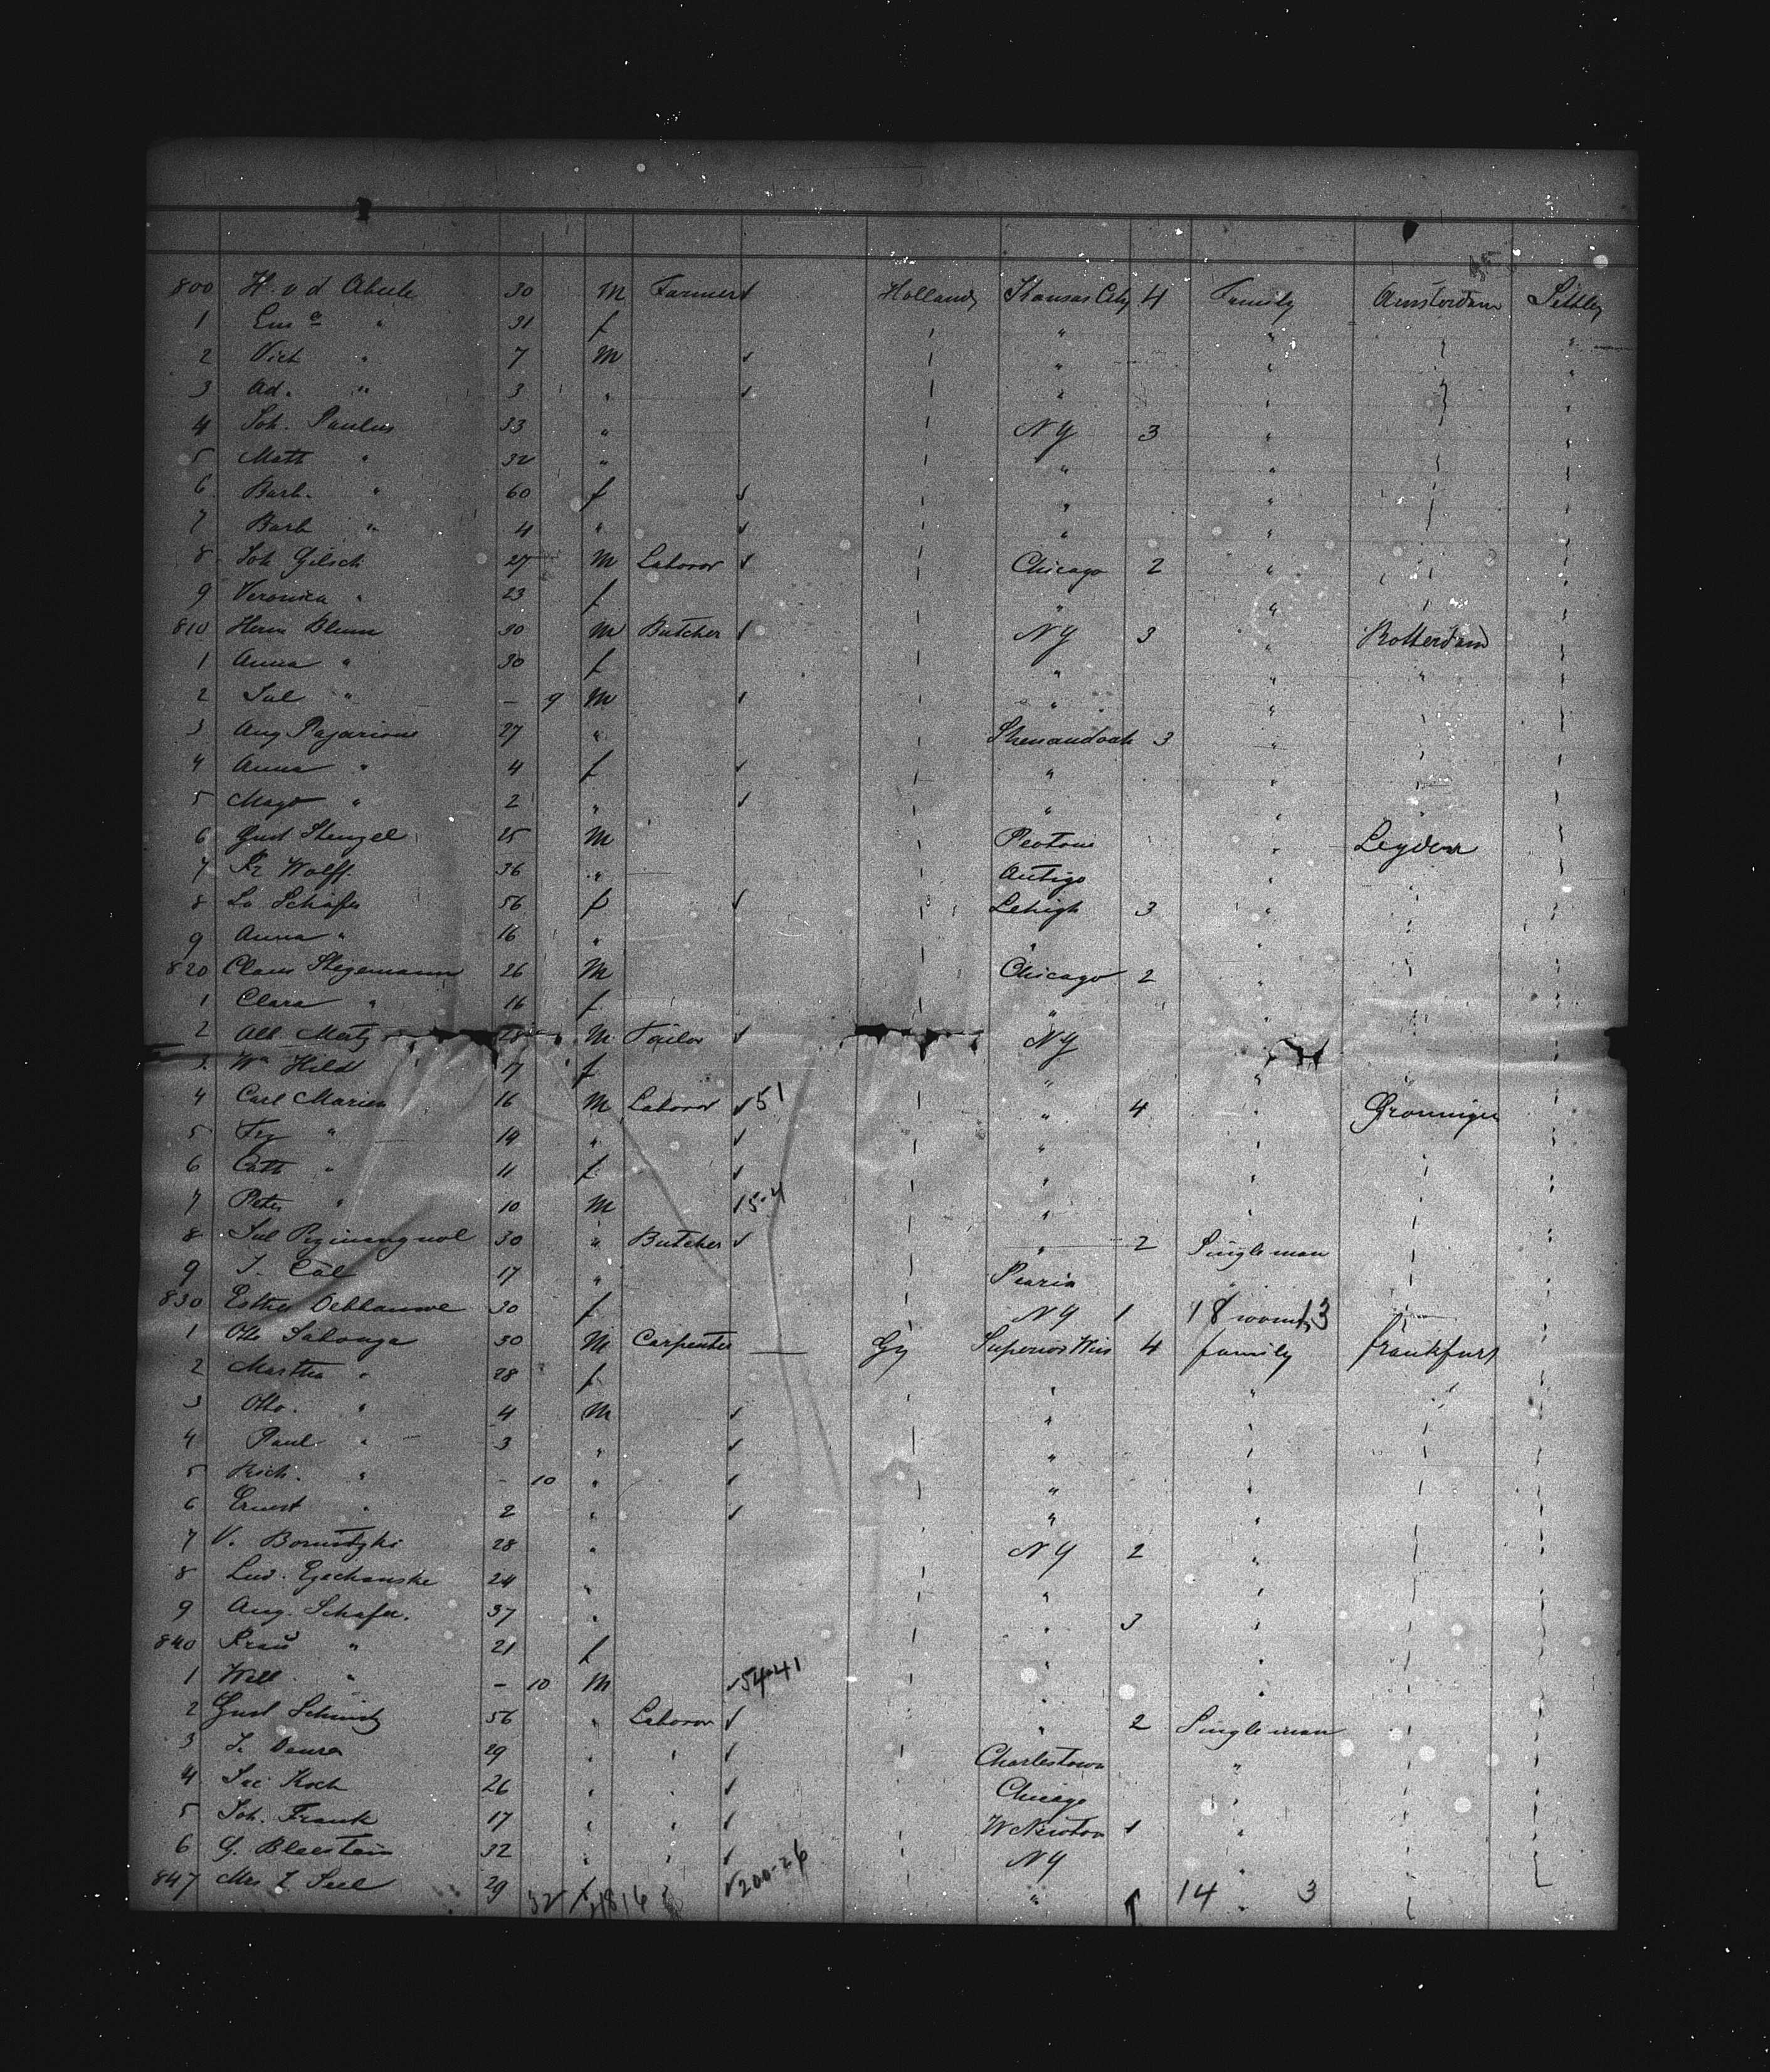 800 H. v d Abeele 30 M Farmer Holland Kansas City 4 Family Amsterdam Settler
1 Em a " 31 f " "
2 Vict " 7 M " "
3 Ad. " 3 " " "
4 Joh. Paulus 33 " NY 3 "
5 Math " 32 " " "
6 Barb. " 60 f " "
7 Barb " 4 " " "
8 Joh Gilsch 27 M Laboror Chicago 2 "
9 Veronica " 23 f " "
810 Herm Blum 30 M Butcher NY 3 " Rotterdam
1 Anna " 30 f " " "
2 Jul " – 9 M " "
3 Aug 27 " Shenandoah 3 "
4 Anna " 4 f " "
5 Magd " 2 " " "
6 Gust Stengel 25 M Peotone " Leyden
7 Fr Wolff 36 " Antigo "
8 Lo Schäfer 56 f Lehigh 3 "
9 Anna " 16 " " "
820 Claus Stegemann 26 M Chicago 2 "
1 Clara " 16 f " "
2 Alb. Metz 28 M Tailor NY "
3 Wm Hild 17 f " "
4 Carl Marien 16 M Laboror 51 " 4 " Groningen
5 " 19 " " "
6 Cath " 11 f " "
7 Peter " 10 M 5-4 " "
8 Jul 30 " Butcher " 2 Single man
9 J. Cal 17 " Pearia "
830 Esther 30 f NY 1 18 3
1 Otto 30 M Carpenter Gy Superior Wis 4 family Frankfurt
2 Martha " 28 f " "
3 Otto. " 4 M " "
4 Paul " 3 " " "
5 Rich. " – 10 " " "
6 Ernest " 2 " " "
7 V. 28 " NY 2 "
8 Lud. 24 " " "
9 Aug. Schafer. 37 " " 3 "
840 Frau " 21 f " "
1 Will " – 10 M 54-41 " "
2 Gust Schmitz 56 " Laboror " 2 Single man
3 J. 29 " " Charlestown "
4 Koch 26 " " Chicago "
5 Joh. Frank 17 " " W Newton 1 "
6 G. 32 " " NY "
847 Mrs 29 200-26 " 1 14 3